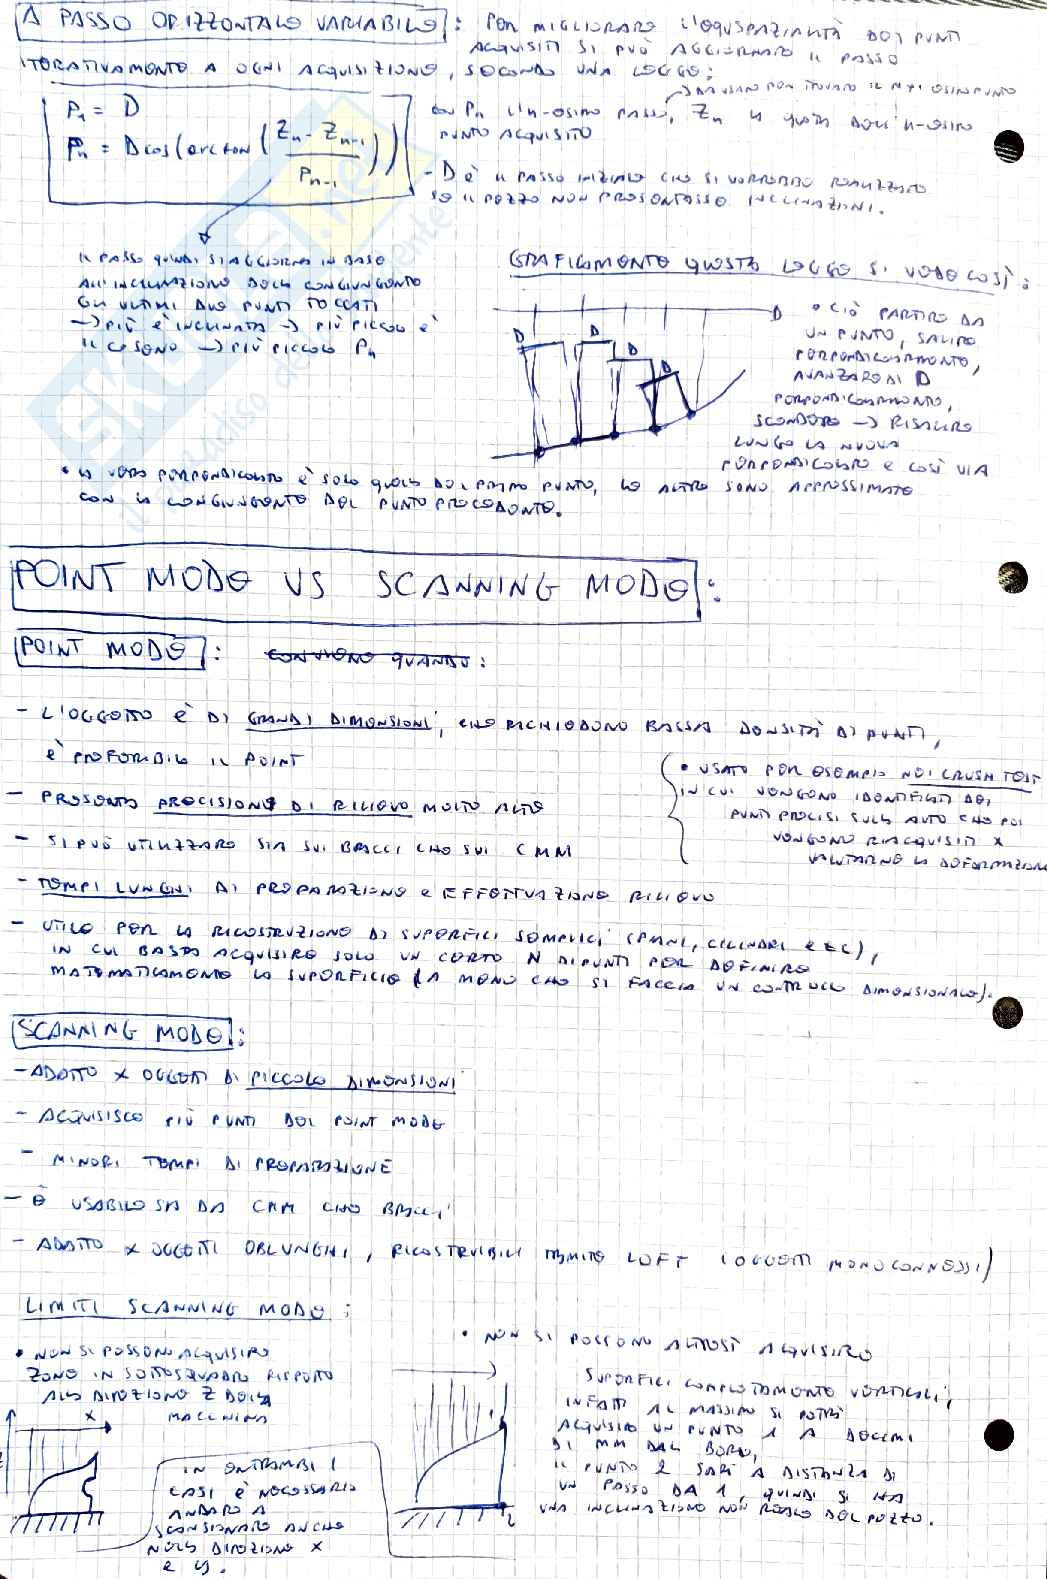 A PASSO ORIZZONTALE VARIABILE: PER MIGLIORARE L'EQUISPAZIALITÀ DEI PUNTI
ACQUISITI SI PUÒ AGGIORNARE IL PASSO
ITERATIVAMENTE A OGNI ACQUISIZIONE, SECONDO UNA LEGGE:
P₁ = D
Pₙ = D cos(arctan(Zₙ - Zₙ₋₁ / Pₙ₋₁))
→ DA USARE PER TROVARE IL N+1 ESIMO PUNTO
CON Pₙ L'N-ESIMO PASSO, Zₙ LA QUOTA DELL'N-ESIMO
PUNTO ACQUISITO
- D È IL PASSO INIZIALE CHE SI VORREBBE REALIZZATO
SE IL PEZZO NON PRESENTASSE INCLINAZIONI.
IL PASSO QUINDI SI AGGIORNA IN BASE
ALL'INCLINAZIONE DELLA CONGIUNGENTE
GLI ULTIMI DUE PUNTI TOCCATI
→ PIÙ È INCLINATA → PIÙ PICCOLO È
IL COSENO → PIÙ PICCOLO Pₙ
GRAFICAMENTE QUESTA LEGGE SI VEDE COSÌ:
D D D D D
• CIÒ PARTIRE DA
UN PUNTO, SALIRE
PERPENDICOLARMENTE,
AVANZARE DI D
PERPENDICOLARMENTE,
SCENDERE → RISALIRE
LUNGO LA NUOVA
PERPENDICOLARE E COSÌ VIA
• LA VERA PERPENDICOLARE È SOLO QUELLA DEL PRIMO PUNTO, LE ALTRE SONO APPROSSIMATE
CON LA CONGIUNGENTE DEL PUNTO PRECEDENTE.
POINT MODE VS SCANNING MODE:
POINT MODE: CONVIENE QUANDO:
- L'OGGETTO È DI GRANDI DIMENSIONI, CHE RICHIEDONO BASSA DENSITÀ DI PUNTI,
È PREFERIBILE IL POINT
- PRESENTA PRECISIONE DI RILIEVO MOLTO ALTA
- SI PUÒ UTILIZZARE SIA SUI BRACCI CHE SUI CMM
- TEMPI LUNGHI DI PREPARAZIONE E EFFETTUAZIONE RILIEVO
• USATO PER ESEMPIO NEI CRUSH TEST
IN CUI VENGONO IDENTIFICATI DEI
PUNTI PRECISI SULLA AUTO CHE POI
VENGONO RIACQUISITI X
VALUTARNE LA DEFORMAZIONE
- UTILE PER LA RICOSTRUZIONE DI SUPERFICI SEMPLICI (PIANI, CILINDRI E EC),
IN CUI BASTA ACQUISIRE SOLO UN CERTO N DI PUNTI PER DEFINIRE
MATEMATICAMENTE LA SUPERFICIE (A MENO CHE SI FACCIA UN CONTROLLO DIMENSIONALE).
SCANNING MODE:
- ADATTO X OGGETTI DI PICCOLE DIMENSIONI
- ACQUISISCO PIÙ PUNTI DEL POINT MODE
- MINORI TEMPI DI PREPARAZIONE
- È USABILE SIA DA CMM CHE BRACCI
- ADATTO X OGGETTI OBLUNGHI, RICOSTRUIBILI TRAMITE LOFT (OGGETTI MONOCONNESSI)
LIMITI SCANNING MODE:
• NON SI POSSONO ACQUISIRE
ZONE IN SOTTOSQUADRO RISPETTO
ALLA DIREZIONE Z DELLA
MACCHINA
X
Z
IN ENTRAMBI I
CASI È NECESSARIO
ANDARE A
SCANSIONARE ANCHE
NELLA DIREZIONE X
E Y.
• NON SI POSSONO ALTRESÌ ACQUISIRE
SUPERFICI COMPLETAMENTE VERTICALI,
INFATTI AL MASSIMO SI POTRÀ
ACQUISIRE UN PUNTO 1 A DECIMI
DI MM DAL BORDO,
IL PUNTO 2 SARÀ A DISTANZA DI
UN PASSO DA 1, QUINDI SI HA
UNA INCLINAZIONE NON REALE DEL PEZZO.
1
2